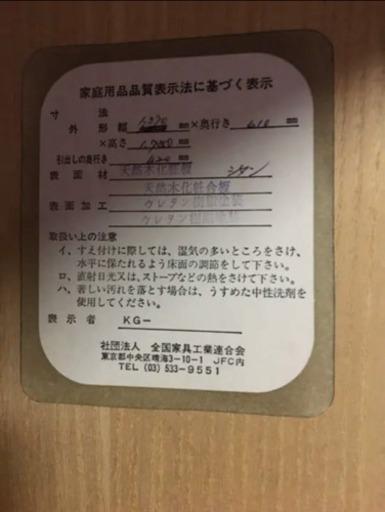 家庭用品品質表示法に基づく表示
寸法
外形 幅 mm × 奥行き 410 mm
× 高さ mm
引出しの奥行き mm
表面材 天然木化粧板 シタン
天然木化粧合板
表面加工 ウレタン樹脂塗装
ウレタン樹脂塗装
取扱い上の注意
イ、すえ付けに際しては、湿気の多いところをさけ、
水平に保たれるよう床面の調節をして下さい。
ロ、直射日光又は、ストーブなどの熱をさけて下さい。
ハ、著しい汚れを落とす場合は、うすめた中性洗剤を
使用してください。
表示者 KG-
社団法人 全国家具工業連合会
東京都中央区晴海3-10-1 JFC内
TEL (03) 533-9551